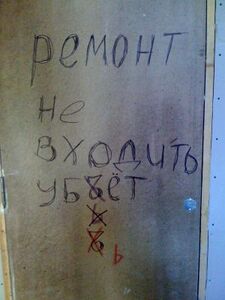 РЕМОНТ
Не
ВХОДИТЬ
УБЪЁТ
Ъ
Ъ
Ь